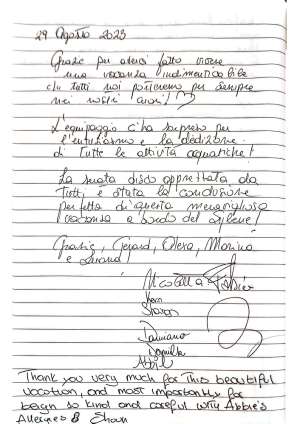 29 Agosto 2023
Grazie per averci fatto vivere
una vacanza indimenticabile
che tutti noi porteremo per sempre
nei nostri cuori!
L'equipaggio ci ha sorpreso per
l'entusiasmo e la dedizione
di tutte le attività acquatiche!
La serata disco apprettata da
tutti è stata la conclusione
perfetta di questa meravigliosa
vacanza a bordo del
Grazie, Gerard, Olexa, Monica
e
Nicoletta
Damiano
Daniela
Thank you very much for this beautiful
vacation, and most importantly for
beign so kind and careful with Abbie's
Allergies